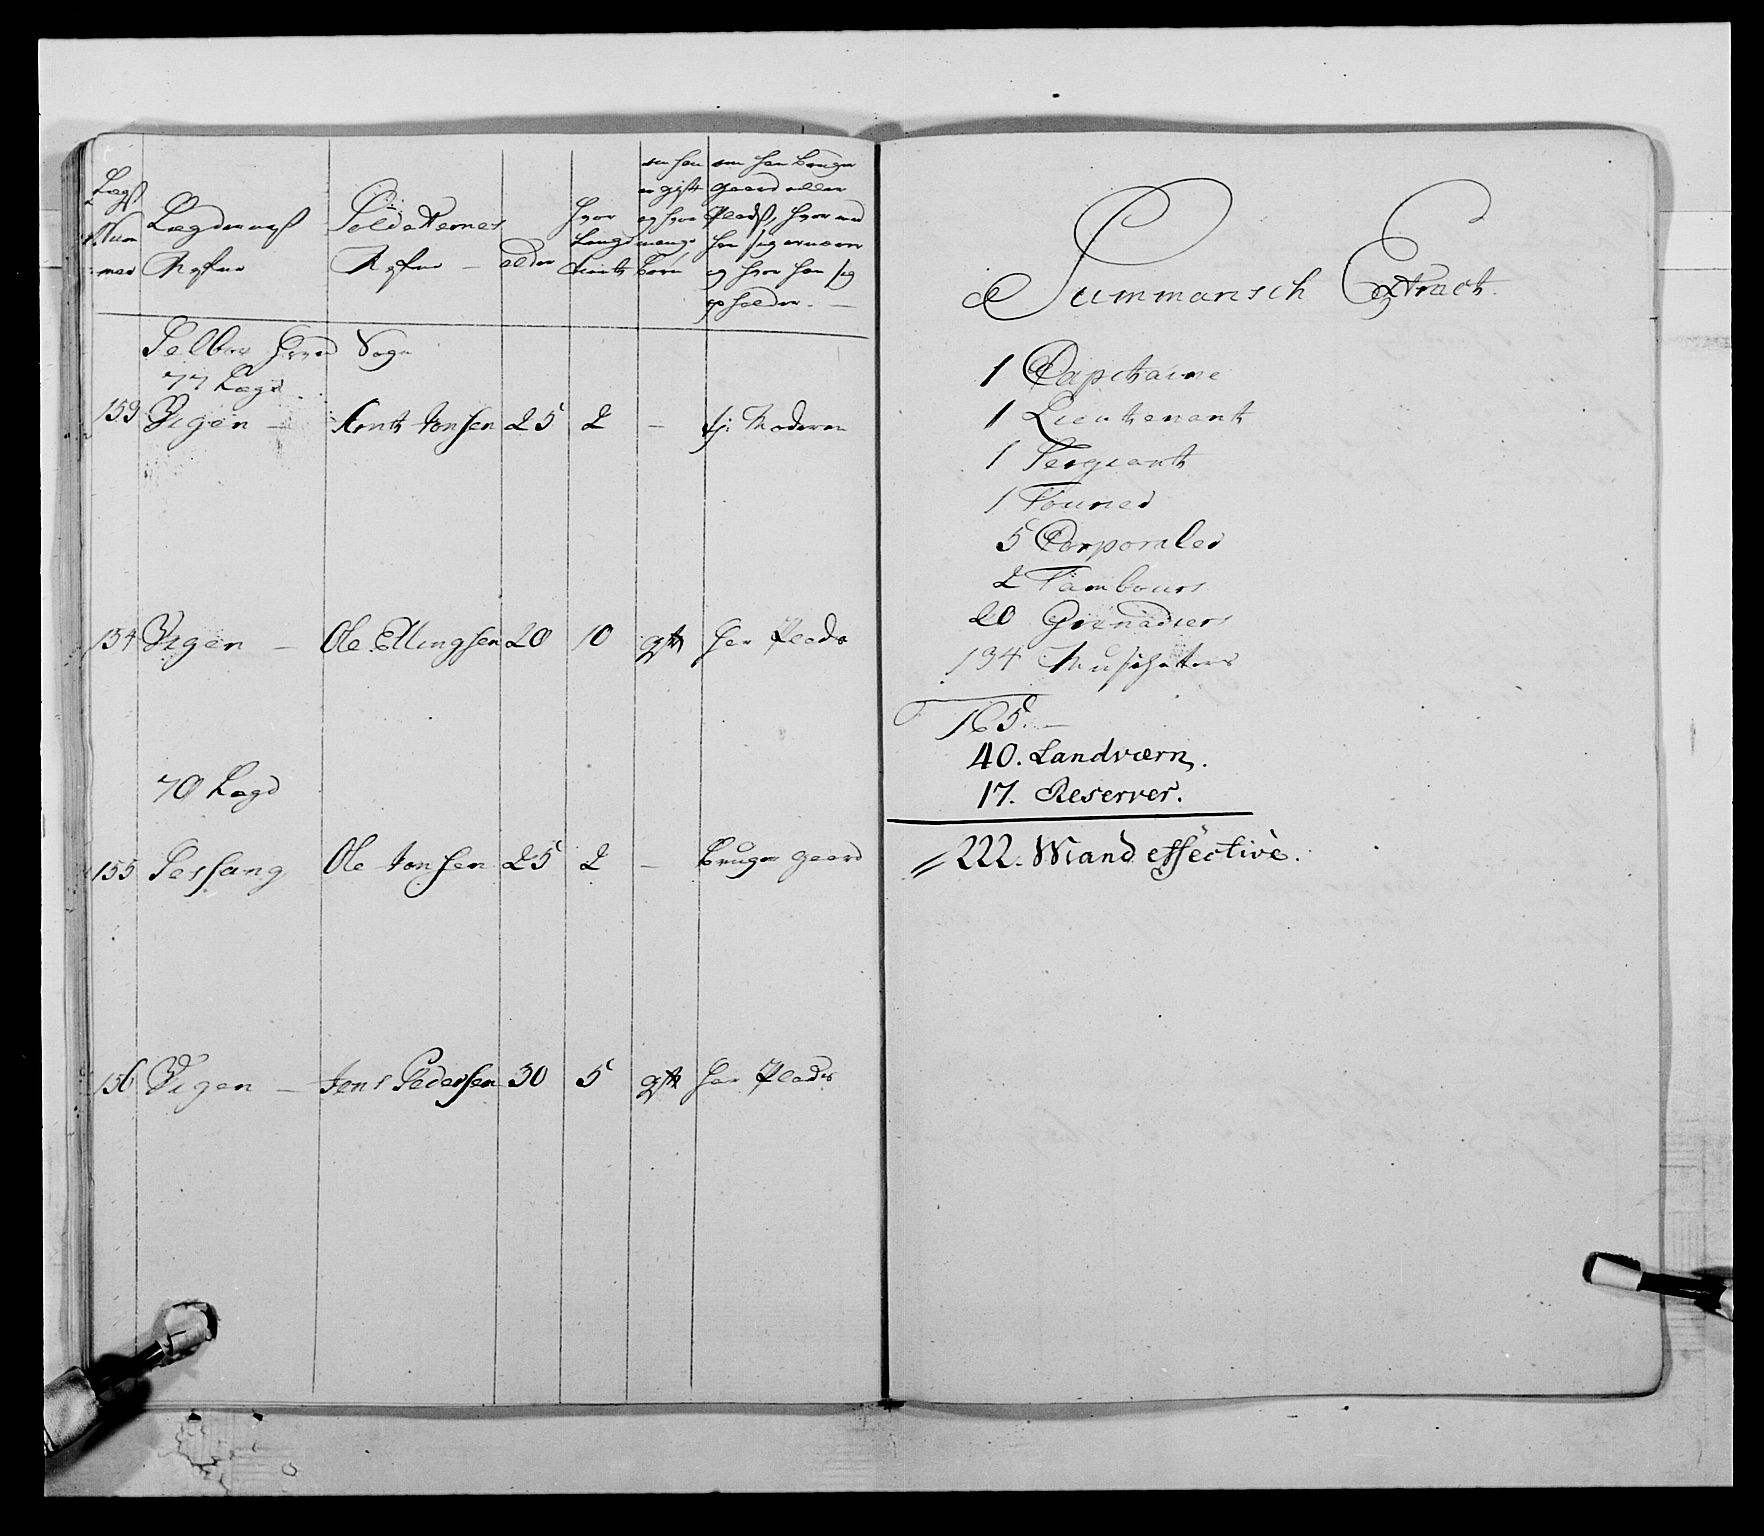 Lægdernes
Soldaternes
Nafne
Nafne
alder
hvor
Længe
tient
om han
er gift
og hvor
mange
børn
om han bruger
gaard eller
Plads, hvor med
han sig ernærer
og hvor han sig
opholder.
Selboe Sogn
77 Lægd
153 Vigen — Arnt Jonsen 25 2 — hj: Moderen
154 Vigen — Ole Ellingsen 20 10 gift har Plads
70 Lægd
155 Sessang Ole Jonsen 25 2 — bruger gaard
156 Vigen — Jens Pedersen 30 5 gift har Plads
Summarisch Extract
1 Capitaine
1 Lieutenant
1 Sergiant
1 Foureer
5 Corporaler
2 Tambours
20 Grenadiers
134 Musqueters
165. —
40. Landværn.
17. Reserver.
222. Mand effective.